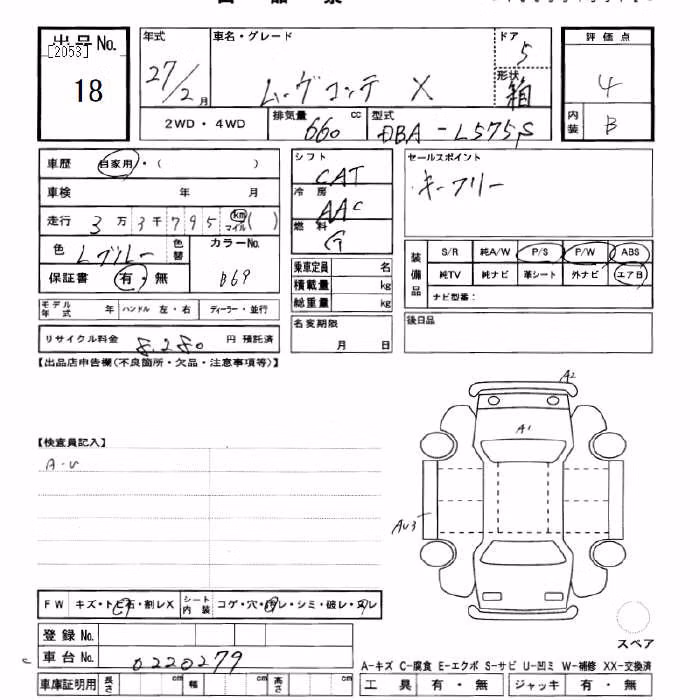 出品票
出品No.
[2053]
18
年式
27/2月
車名・グレード
ムーヴコンテ X
ドア
5
形状
箱
評価点
4
内装
B
2WD・4WD
排気量
660 cc
型式
DBA-L575S
車歴
自家用・( )
車検 年 月
走行 3万3千795 km マイル ( )
色
Lブルー
色替
カラーNo.
B69
保証書 有・無
モデル年式 年
ハンドル 左・右
ディーラー・並行
リサイクル料金 8,280 円 預託済
シフト
CAT
冷房
AAC
燃料
G
乗車定員 名
積載量 kg
総重量 kg
名変期限
月 日
セールスポイント
キーフリー
装備品
S/R 純A/W P/S P/W ABS
純TV 純ナビ 革シート 外ナビ エアB
ナビ型番:
後日品
【出品店申告欄(不良箇所・欠品・注意事項等)】
【検査員記入】
A・U
A2
A1
AU3
スペア
FW キズ・トビ石・割レX
シート内装 コゲ・穴・汚レ・シミ・破レ・スレ
登録No.
車台No. 0220279
車庫証明用 長さ cm 幅 cm 高さ cm
A-キズ C-腐食 E-エクボ S-サビ U-凹ミ W-補修 XX-交換済
工具 有・無 ジャッキ 有・無